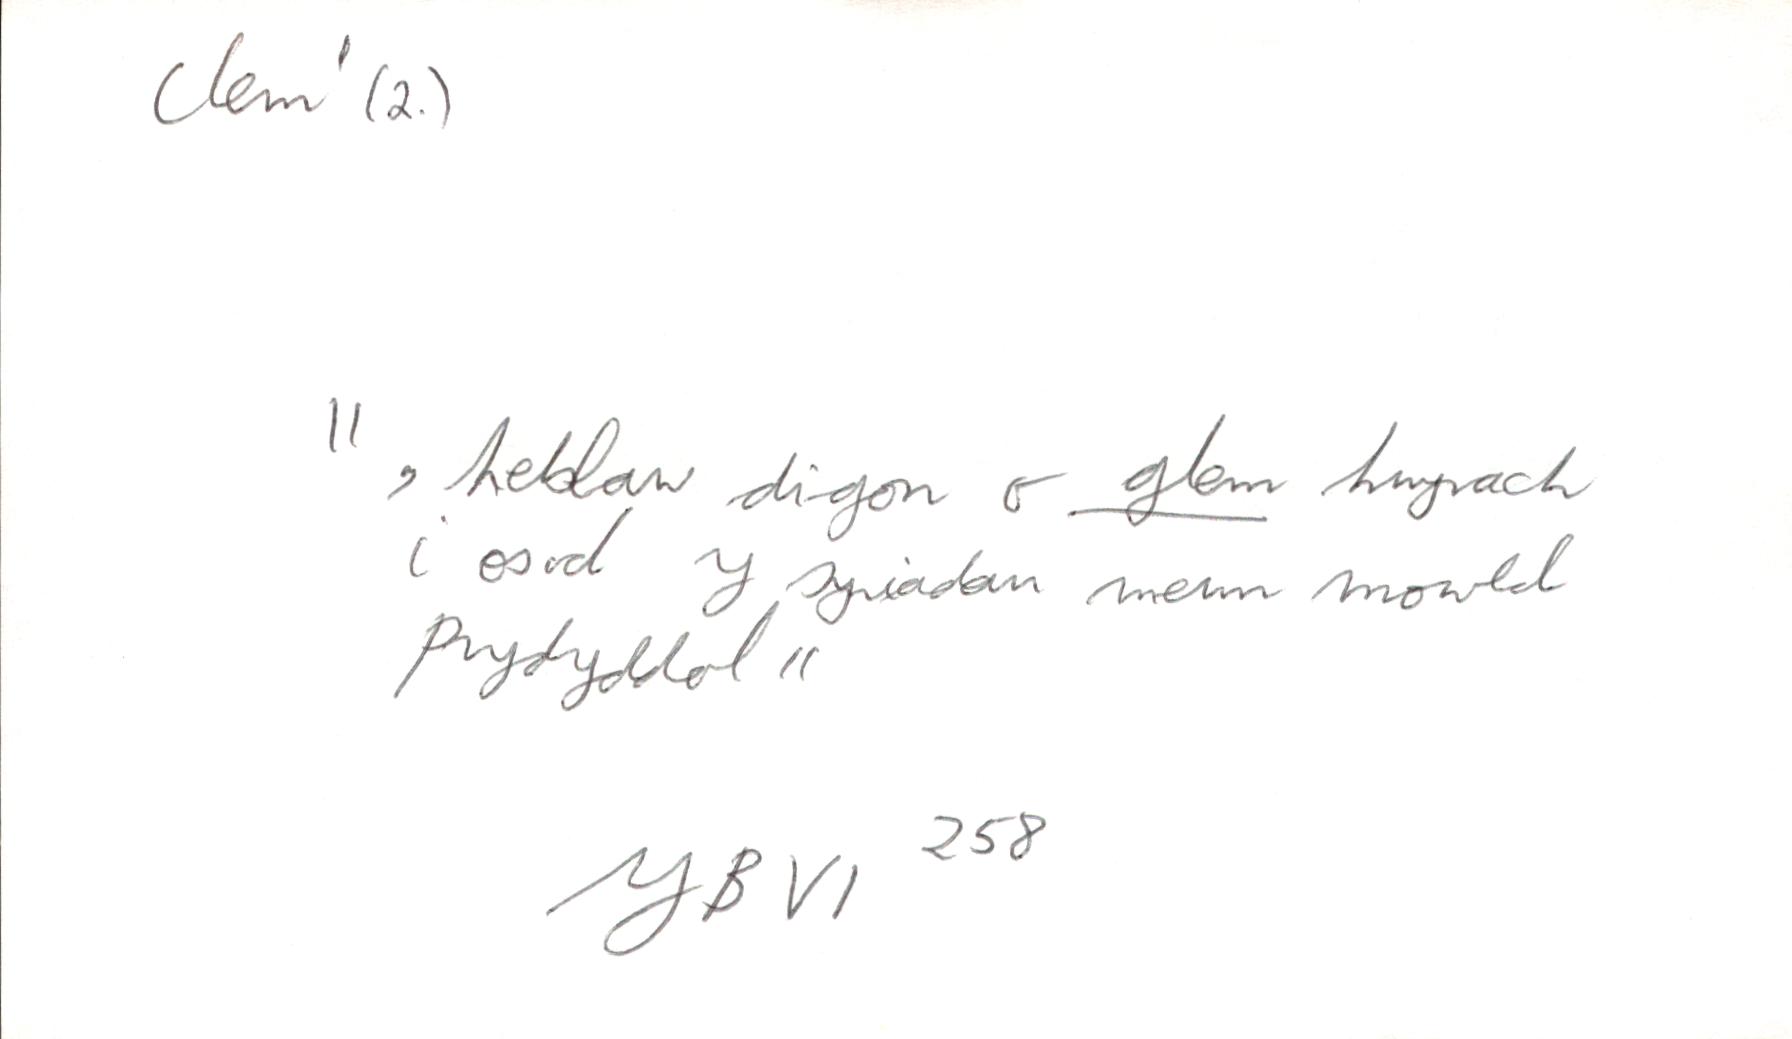 clem' (2.)
", heblaw digon o glem hwyrach
i osod y syniadau mewn mowld
prydyddol"
YB VI 258